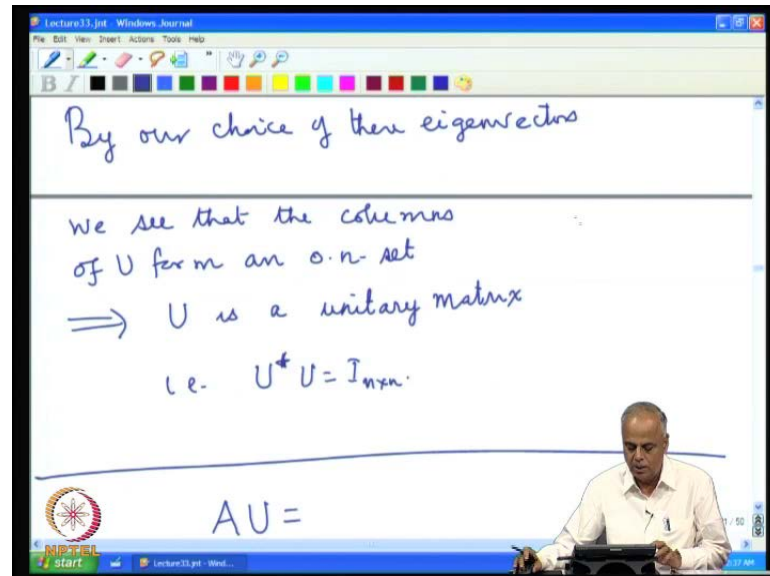 Lecture33.jnt - Windows Journal
File Edit View Insert Actions Tools Help
B I
By our choice of these eigenvectors
We see that the columns
of U form an o.n. set
⟹ U is a unitary matrix
i.e. U* U = I n×n.
AU =
/ 50
NPTEL
start Lecture33.jnt - Wind... 2:37 AM